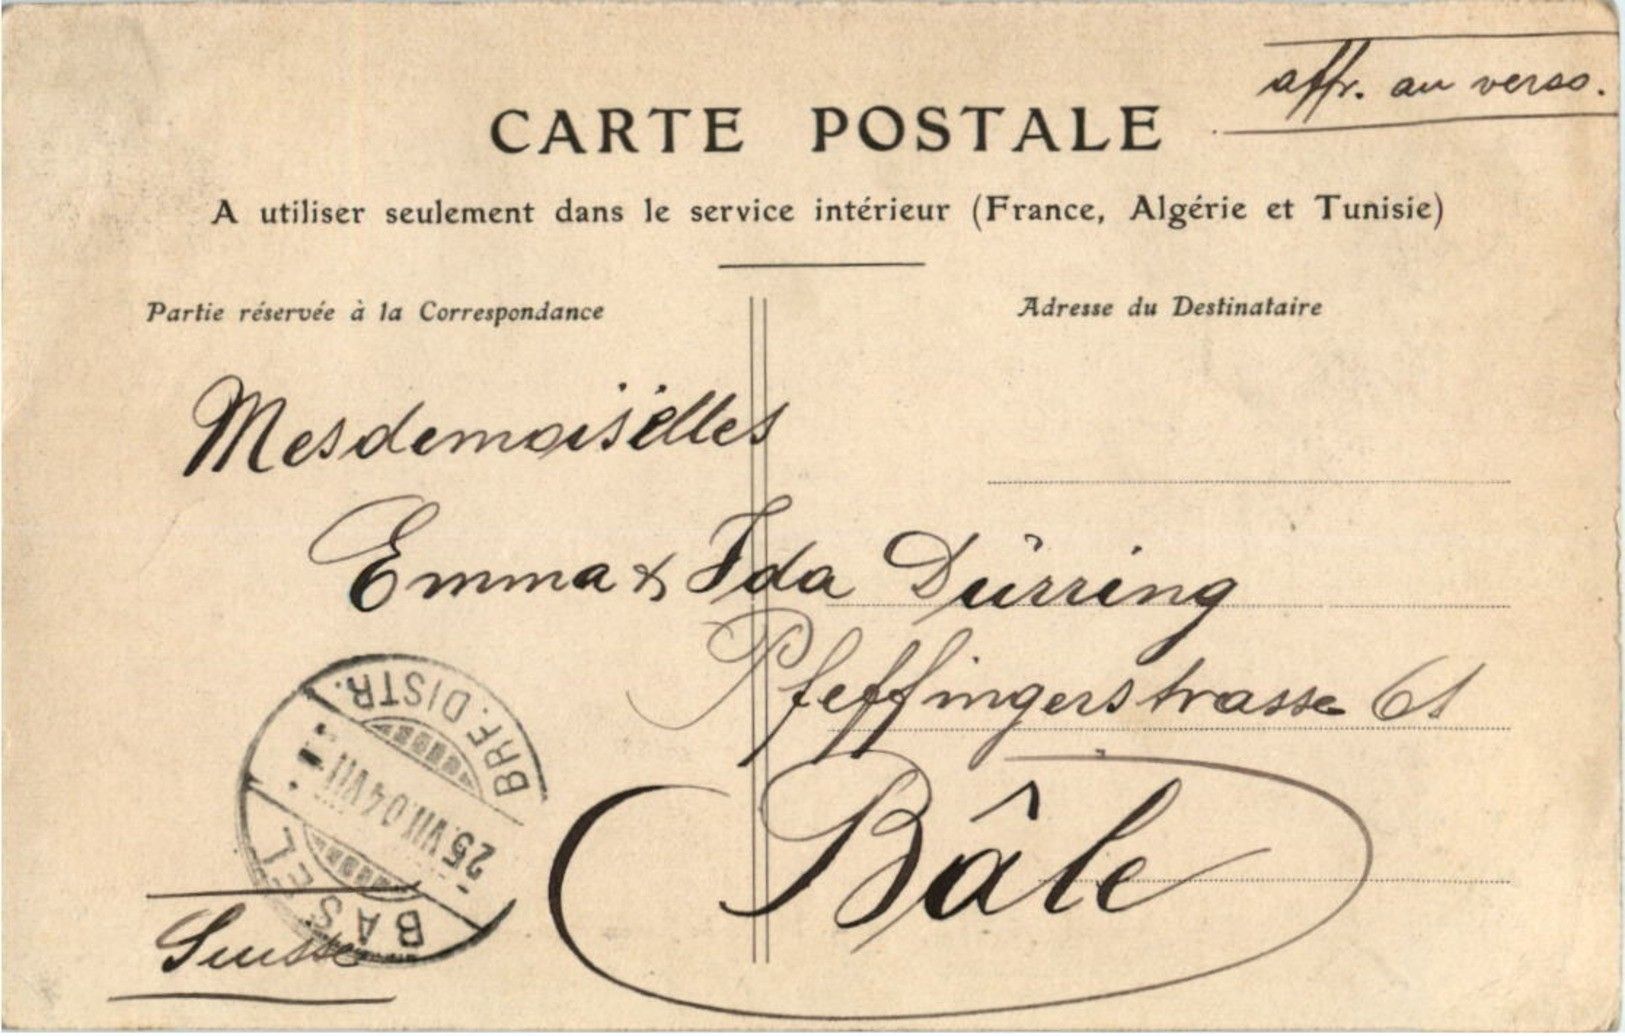 affr. au verso.
CARTE POSTALE
A utiliser seulement dans le service intérieur (France, Algérie et Tunisie)
Partie réservée à la Correspondance
Adresse du Destinataire
Mesdemoiselles
Emma & Ida Dürring
Pfeffingerstrasse 61
Bâle
Suisse
BASEL
25.VII.04 VII
BRF. DISTR.